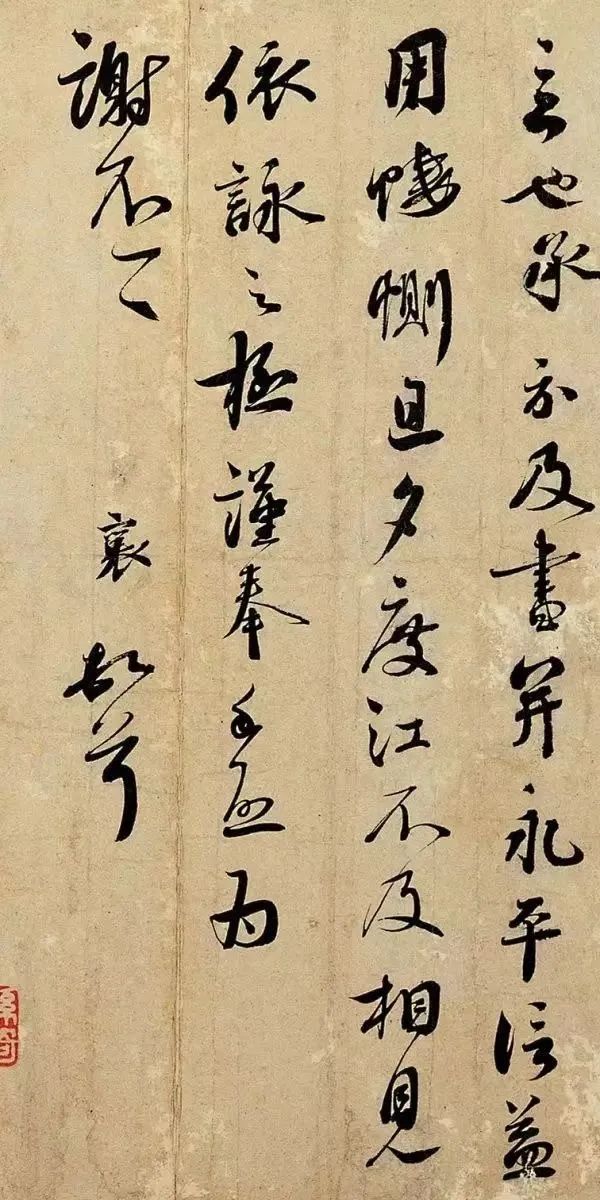 言也承示及書并永平信益
用悽惻旦夕度江不及相見
依詠之極謹奉手啓為
謝不一一 襄頓首